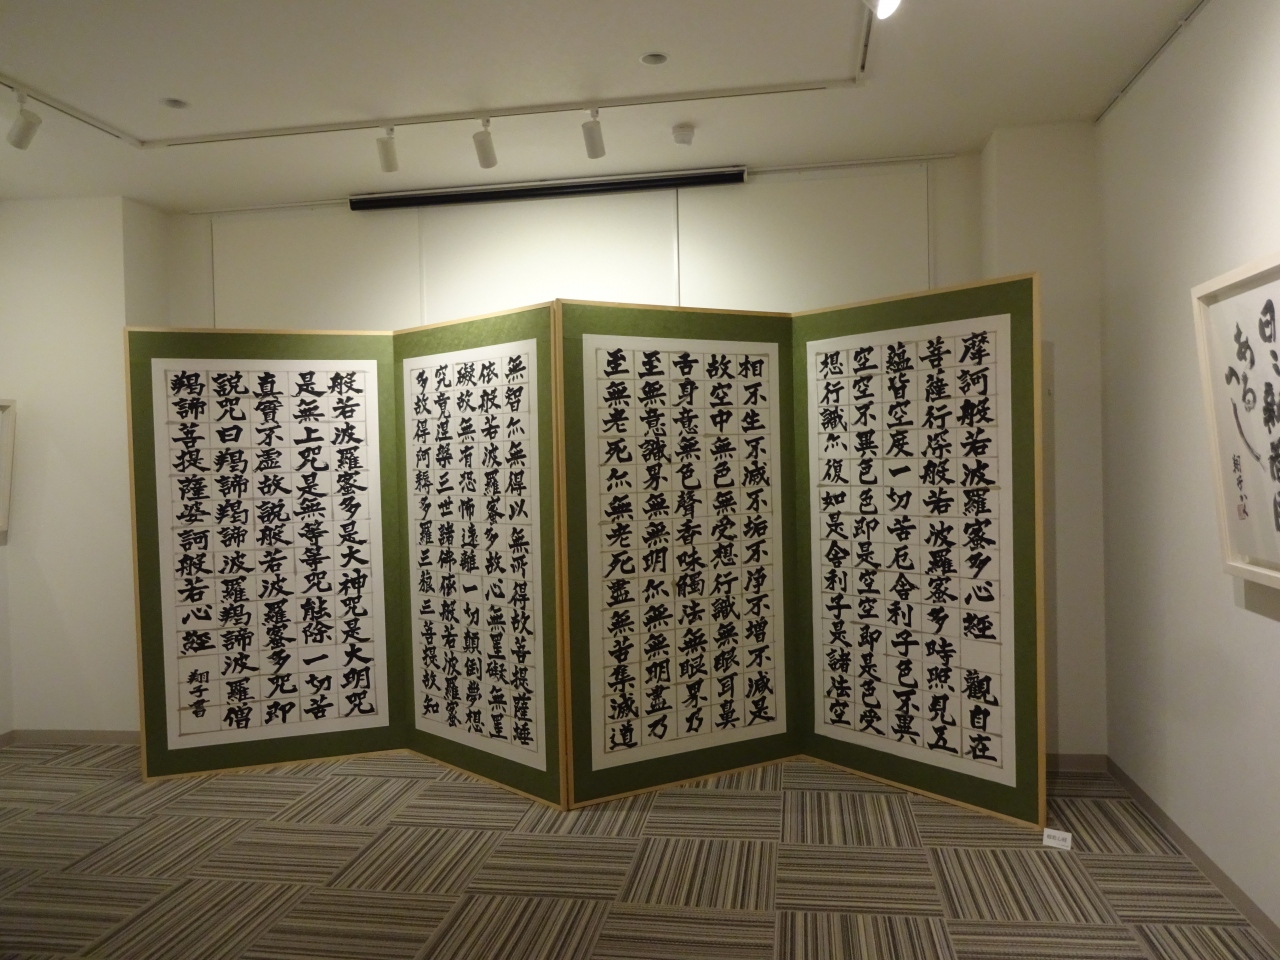 摩訶般若波羅蜜多心経 觀自在
菩薩行深般若波羅蜜多時照見五
蘊皆空度一切苦厄舎利子色不異
空空不異色色即是空空即是色受
想行識亦復如是舎利子是諸法空
相不生不滅不垢不浄不増不減是
故空中無色無受想行識無眼耳鼻
舌身意無色聲香味觸法無眼界乃
至無意識界無無明亦無無明盡乃
至無老死亦無老死盡無苦集滅道
無智亦無得以無所得故菩提薩埵
依般若波羅蜜多故心無罣礙無罣
礙故無有恐怖遠離一切顛倒夢想
究竟涅槃三世諸佛依般若波羅蜜
多故得阿耨多羅三藐三菩提故知
般若波羅蜜多是大神咒是大明咒
是無上咒是無等等咒能除一切苦
真實不虚故説般若波羅蜜多咒即
説咒曰羯諦羯諦波羅羯諦波羅僧
羯諦菩提薩婆訶般若心経 翔子書
ある